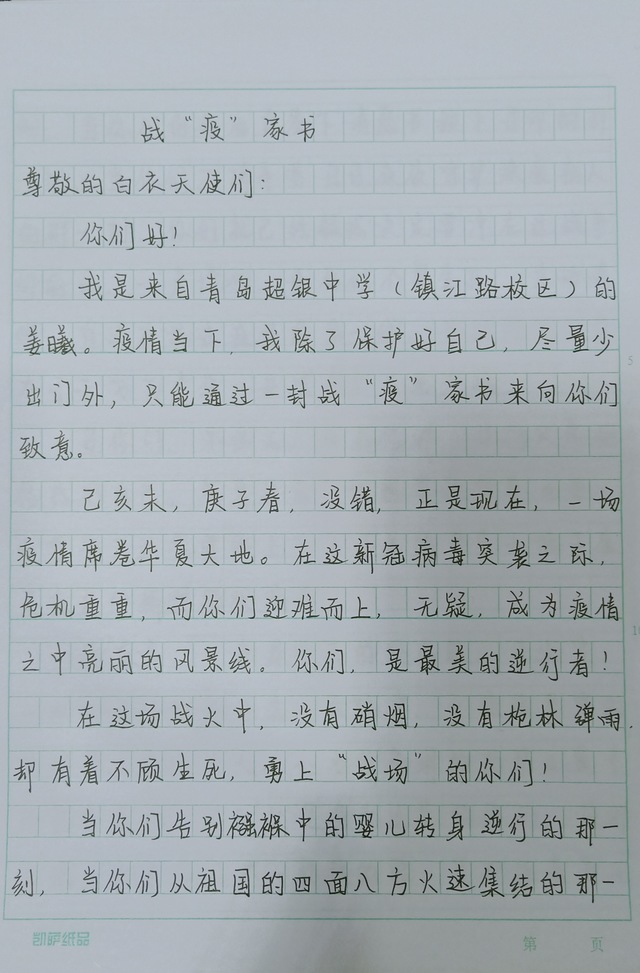 战“疫”家书
尊敬的白衣天使们：
你们好！
我是来自青岛超银中学（镇江路校区）的
姜曦。疫情当下，我除了保护好自己，尽量少
出门外，只能通过一封战“疫”家书来向你们
致意。
己亥末，庚子春，没错，正是现在，一场
疫情席卷华夏大地。在这新冠病毒突袭之际，
危机重重，而你们迎难而上，无疑，成为疫情
之中亮丽的风景线。你们，是最美的逆行者！
在这场战火中，没有硝烟，没有枪林弹雨，
却有着不顾生死，勇上“战场”的你们！
当你们告别襁褓中的婴儿转身逆行的那一
刻，当你们从祖国的四面八方火速集结的那一
凯萨纸品
第 页
5
10